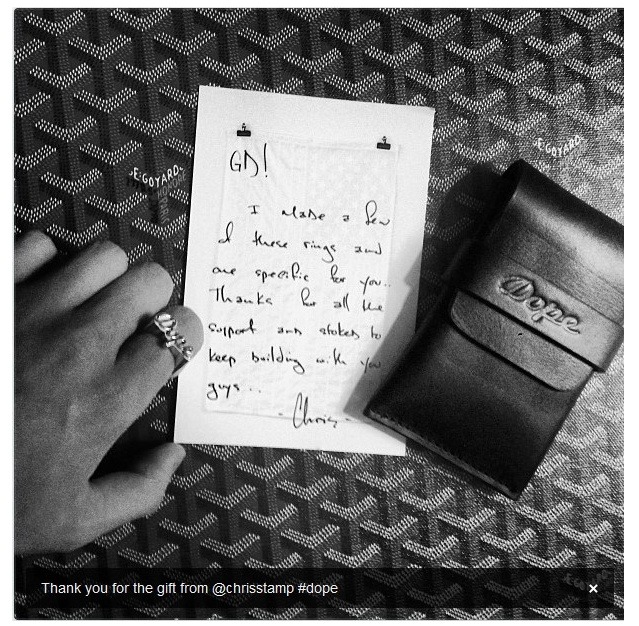 E.GOYARD
E.GOYARD
GD!
I made a few
of these rings and
one specific for you..
Thanks for all the
support and stoked to
keep building with you
guys..
- Chris -
Dope
Thank you for the gift from @chrisstamp #dope